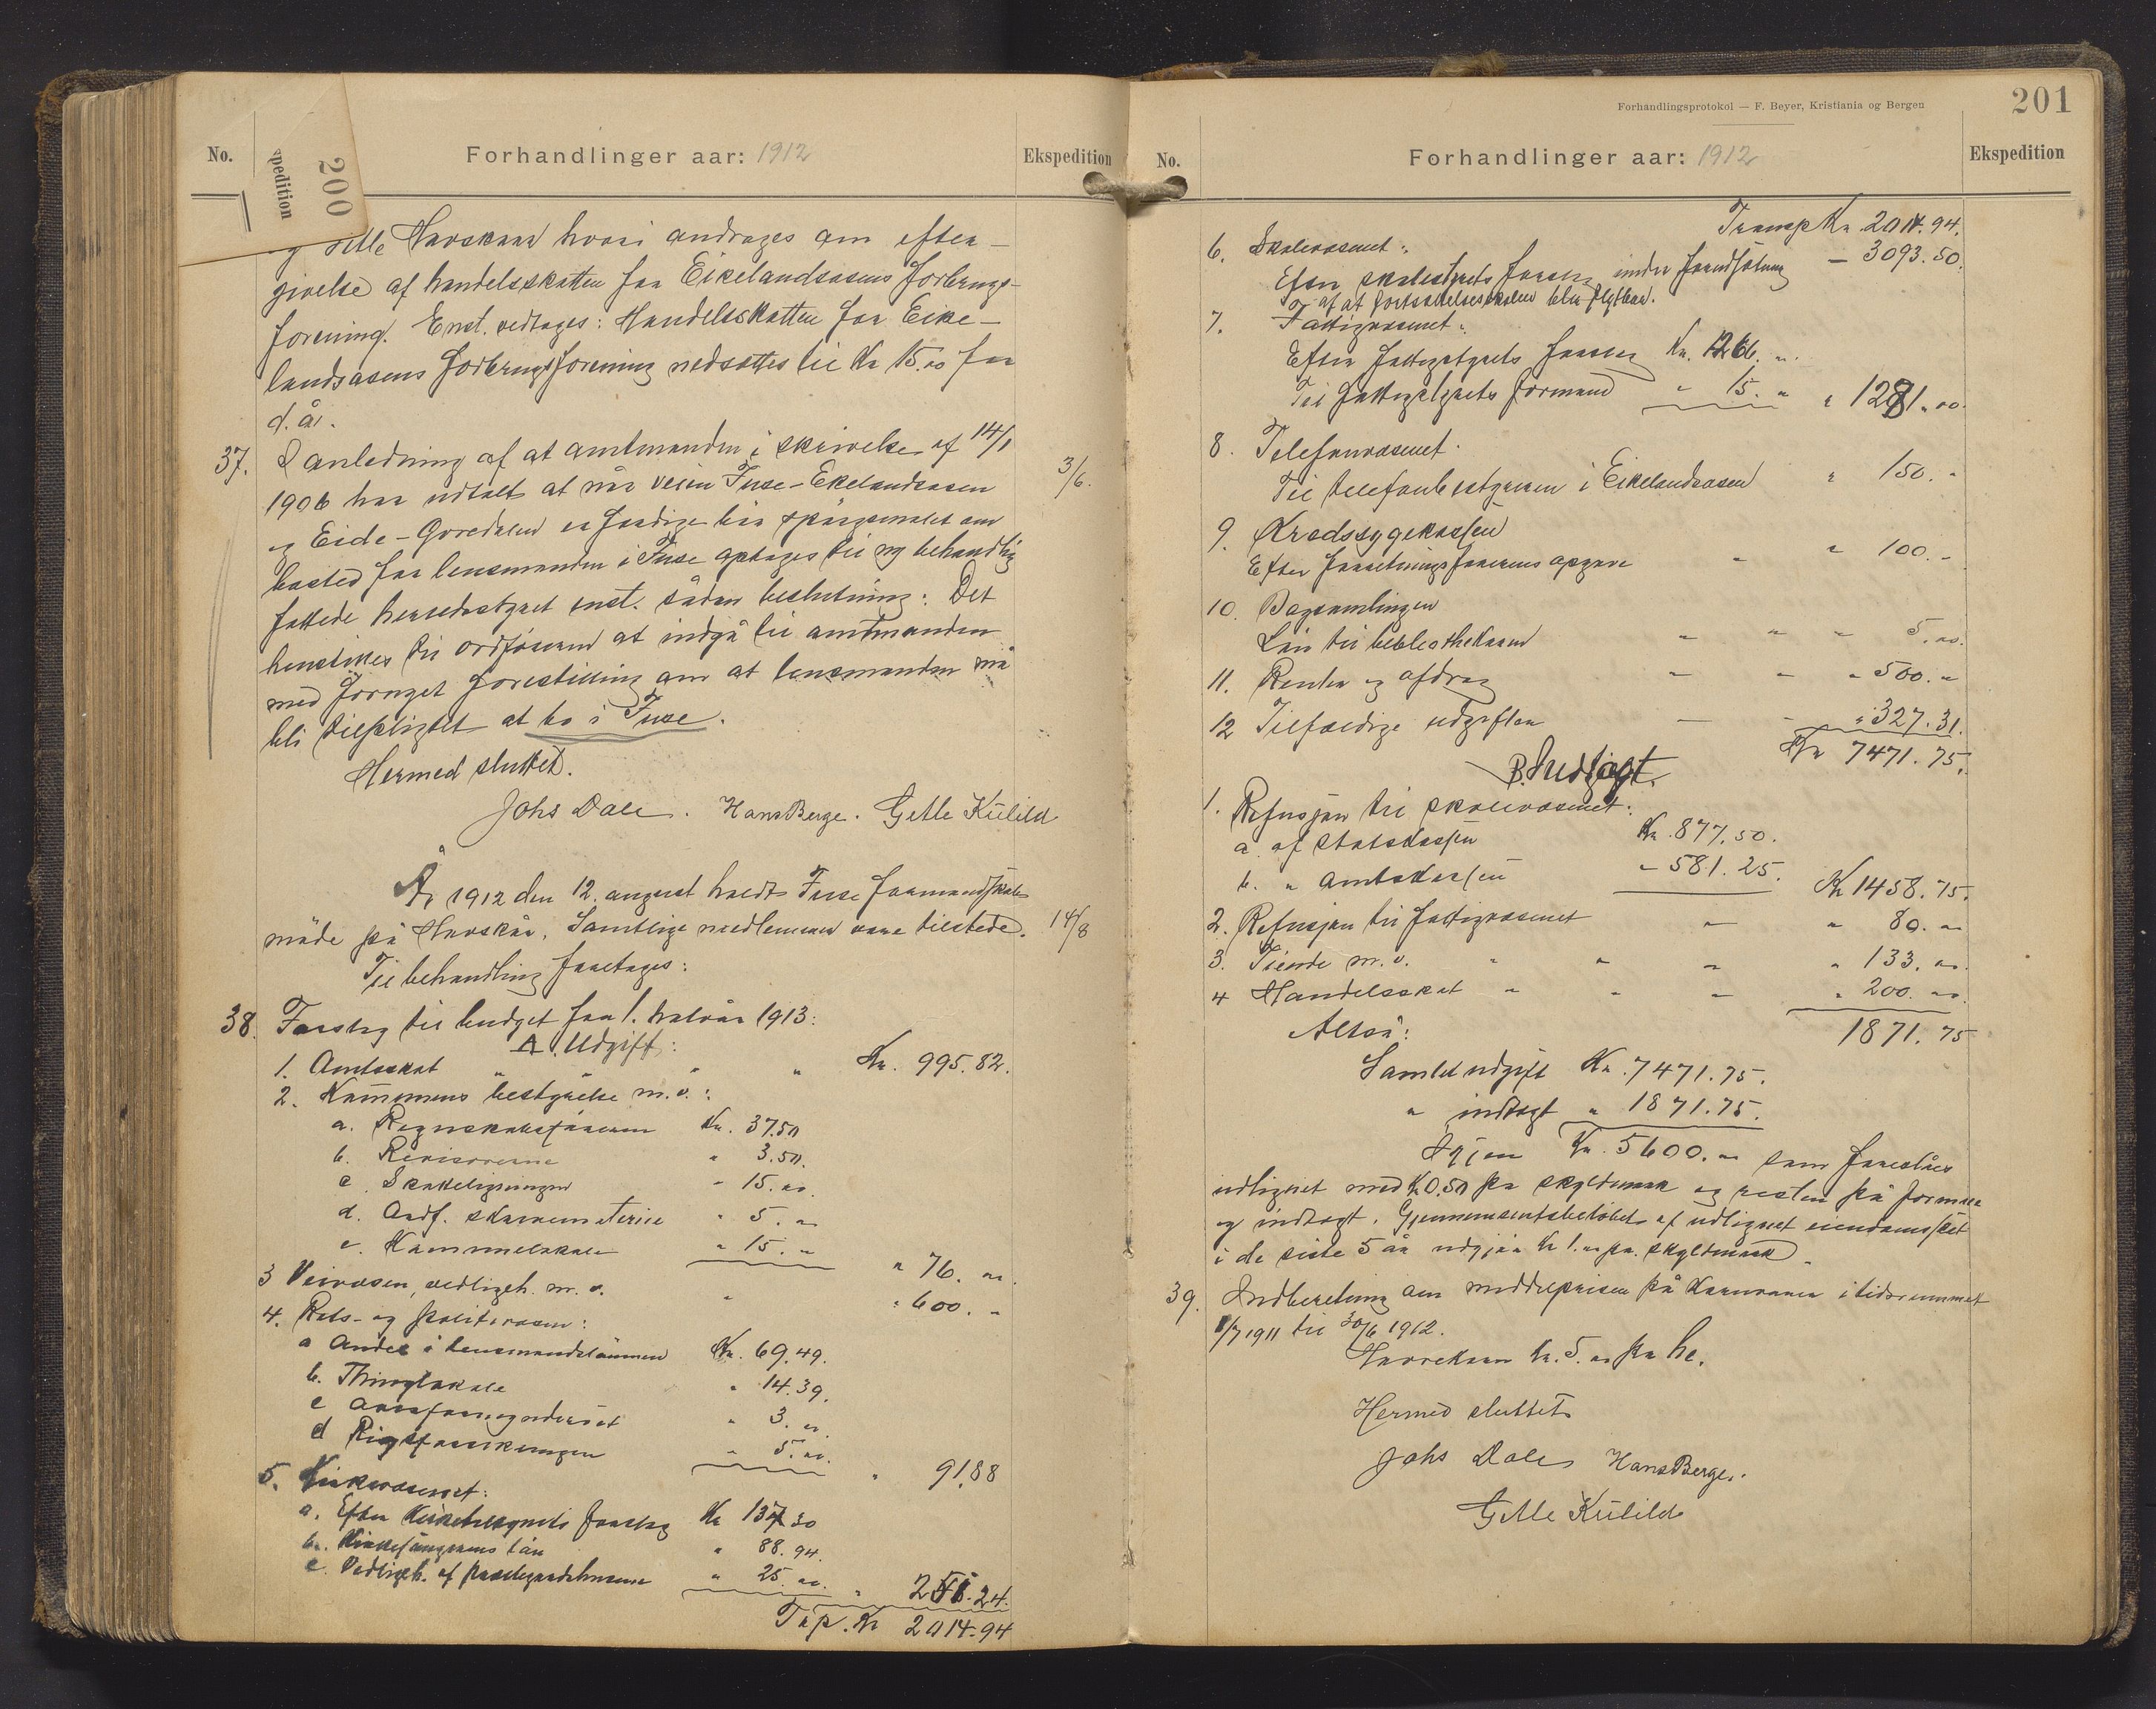 200
pedition
No.
Forhandlinger aar: 1912
Ekspedition
Havskaar hvori andrages om efter-
givelse af handelsskatten for Eikelandsosens forbrugs-
forening. Enst. vedtages: Handelsskatten for Eike-
landsosens forbrugsforening nedsættes til Kr 15.00 for
d. år.
37. I anledning af at amtmanden i skrivelse af 14/1
3/6.
1906 har udtalt at når veien Fuse-Ekelandsosen
og Eide-Goredalen er færdige bør spørgsmålet om
bosted for lensmanden i Fuse optages til ny behandling
fattede herredsstyret enst. sådan beslutning: Det
henstilles til ordføreren at indgå til amtmanden
med fornyet forestilling om at lensmanden må
bli tilpligtet at bo i Fuse.
Hermed sluttet.
Johs Dale. Hans Berge. Gitle Kilild
År 1912 den 12. august holdt Fuse formandskab
møde på Havskår. Samtlige medlemmer vare tilstede.
14/8
Til behandling foretages:
38. Forslag til budget for 1. halvår 1913:
A. Udgift:
1. Amtsskat " " " Kr. 995.82.
2. Kommunens bestyrelse m.v.:
a. Regnskabsføreren Kr. 37.50
b. Revisorerne " 3.50.
c. Skatteligningen " 15.00.
d. Ordf. skrivematerie " 5. "
e. Kommunelokale " 15. "
" 76. 00.
3 Veivæsen, vedligeh. m.v. " " 600. "
4. Rets- og politivæsen:
a Andel i lensmandslønnen Kr. 69.49.
b. Thinglokale " 14.39.
c " 3. 00.
d " 5. 00.
" 91.88
5. Kirkevæsenet:
a. Efter Kirketilsynets forslag Kr 137.30
b. Kirkesangerens løn " 88.94.
c. Vedligeh. af præstegaardshusene " 25. 00.
" 251.24.
Trp. Kr 2014.94
Forhandlingsprotokol — F. Beyer, Kristiania og Bergen
201
No.
Forhandlinger aar: 1912
Ekspedition
Transp Kr. 2014.94.
6. Skolevæsenet:
Efter skolestyrets forslag under forudsætning — 3093.50.
af at fortsættelsesskolen blir flytbar.
7. Fattigvæsenet:
Efter fattigstyrets forslag Kr. 1266. "
Til fattigstyrets formand " 15. " " 1281.00.
8. Telefonvæsenet.
Til telefonbestyreren i Eikelandsosen " 150. "
9. Kredssygekassen
Efter forretningsførerens opgave " " 100. "
10. Bogsamlingen
Løn til bibliothekaren " " " 5.00.
11. Renter og afdrag " " " 500. "
12 Tilfældige udgifter — " " 327.31.
Kr 7471.75.
B. Indtægt.
1. Refusjon til skolevæsenet:
a. af Statskassen Kr. 877.50.
b. " Amtskassen " 581.25.
Kr 1458.75.
2. Refusjon til fattigvæsenet " " 80. "
3. Tiende m.v. " " " " 133. 00.
4 Handelsskat " " " " 200. 00.
Altså: 1871.75
Samlet udgift Kr. 7471.75.
" indtægt " 1871.75.
Igjen Kr. 5600. " som foreslåes
udlignet med Kr 0.50 pr skyldmark og resten på formue
og indtægt. Gjennemsnitsbeløbet af udlignet eiendomsskat
i de siste 5 år udgjør Kr 1.00 pr. skyldmark.
39. Indberetning om middelprisen på kornvarer i tidsrummet
1/7 1911 til 30/6 1912.
Havrekorn Kr. 5.00 pr hl.
Hermed sluttet
Johs Dale Hans Berge.
Gitle Kilild